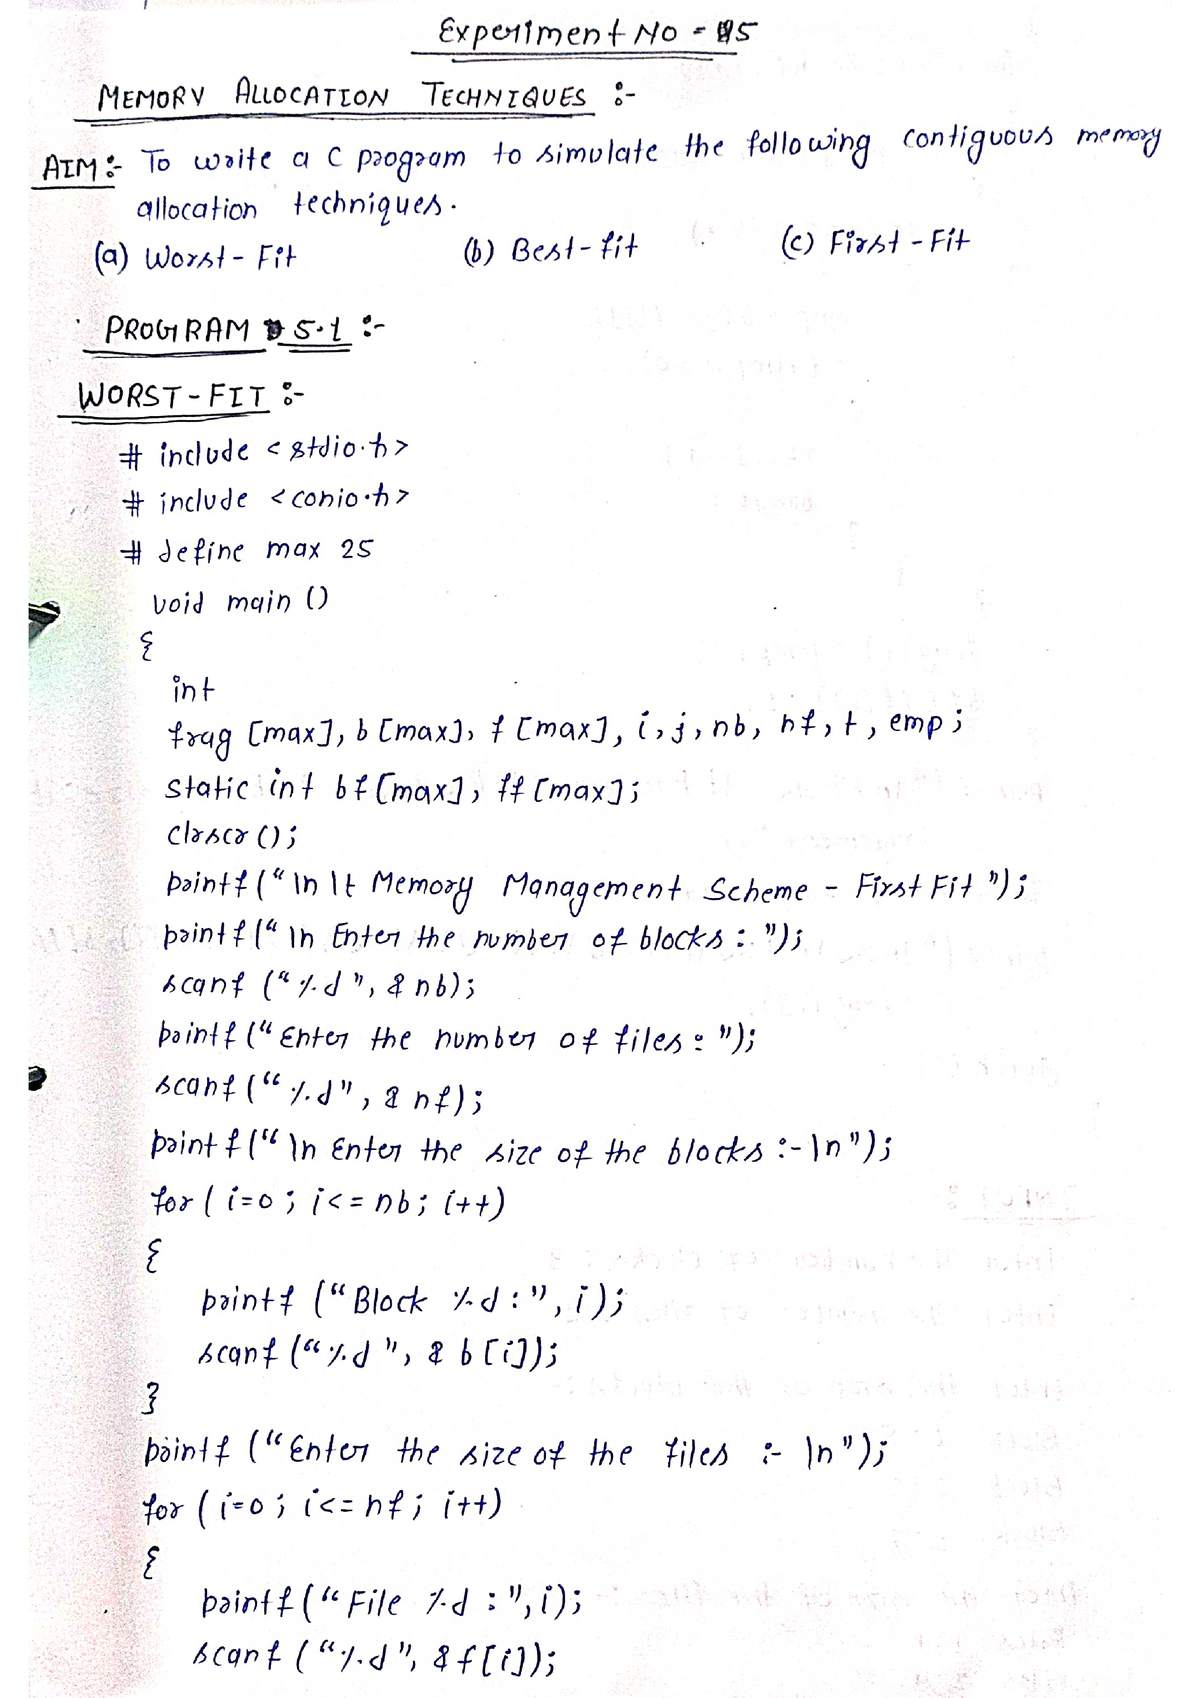 Experiment No - 5
MEMORY ALLOCATION TECHNIQUES :-
AIM :- To write a C program to simulate the following contiguous memory
allocation techniques.
(a) Worst - Fit (b) Best - fit (c) First - Fit
PROGRAM 5.1 :-
WORST - FIT :-
# include <stdio.h>
# include <conio.h>
# define max 25
void main ()
{
int
frag [max], b [max], f [max], i, j, nb, nf, t, emp ;
static int bf [max], ff [max];
clrscr ();
printf ("\n \t Memory Management Scheme - First Fit ");
printf (" \n Enter the number of blocks : ");
scanf ("%d", & nb);
printf ("Enter the number of files : ");
scanf ("%d", & nf);
printf (" \n Enter the size of the blocks :- \n");
for ( i=0 ; i<= nb; i++)
{
printf ("Block %d :", i);
scanf ("%d ", & b [i]);
}
printf ("Enter the size of the files :- \n");
for ( i=0 ; i<= nf ; i++)
{
printf ("File %d :", i);
scanf ("%d", & f [i]);